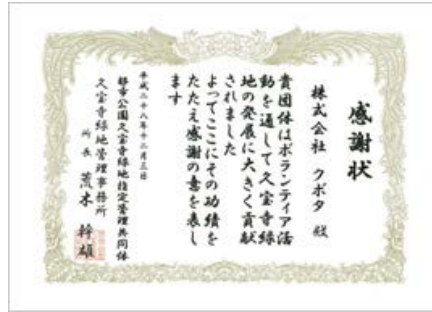 感謝状
株式会社 クボタ 殿
貴団体はボランティア活
動を通して久宝寺緑
地の発展に大きく貢献
されました
よってここにその功績を
たたえ感謝の意を表し
ます
平成二十八年十二月三日
都市公園久宝寺緑地指定管理共同体
久宝寺緑地管理事務所
所長 荒木 幹雄